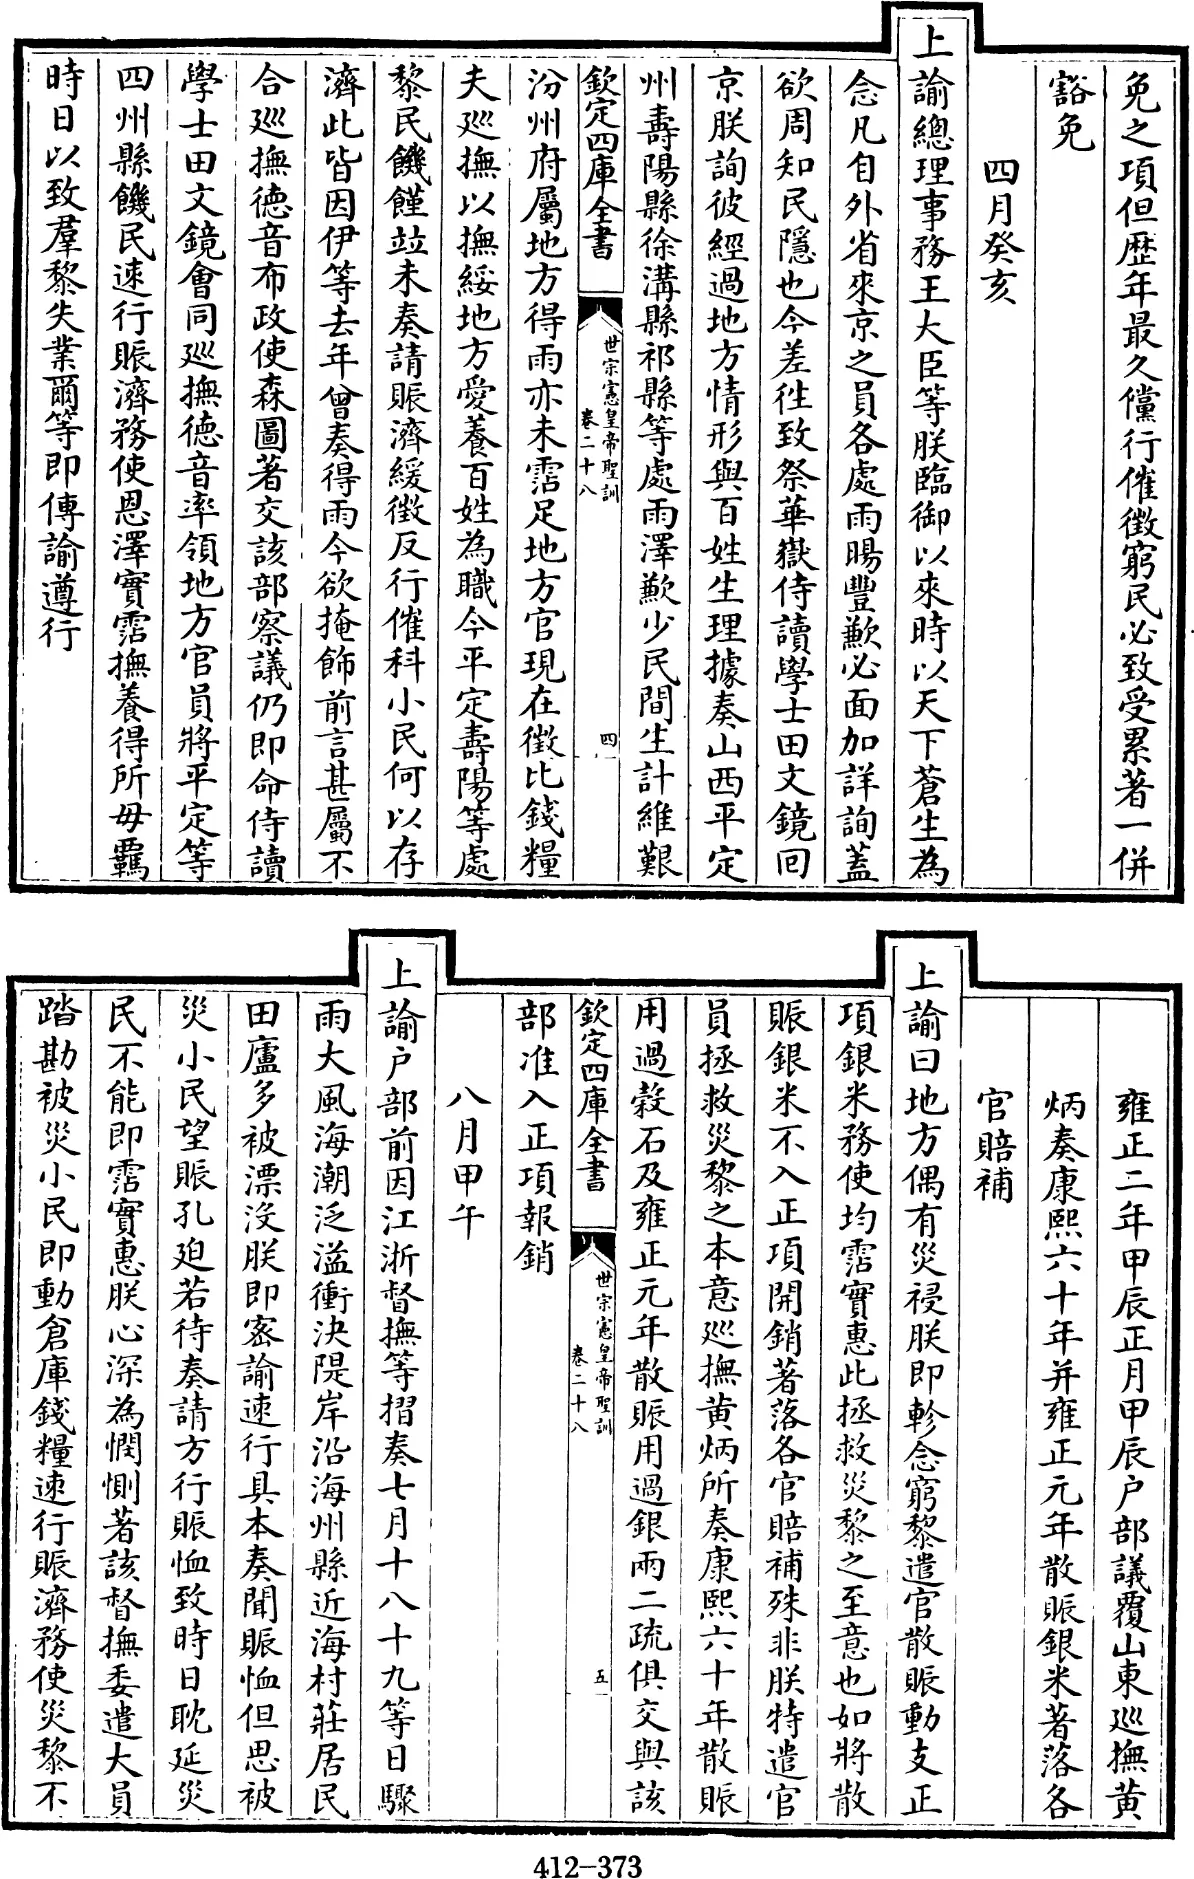 免之項但歷年最久儻行催徵窮民必致受累著一併
豁免
四月癸亥
上諭總理事務王大臣等朕臨御以來時以天下蒼生為
念凡自外省來京之員各處雨暘豐歉必面加詳詢蓋
欲周知民隱也今差往致祭華嶽侍讀學士田文鏡回
京朕詢彼經過地方情形與百姓生理據奏山西平定
州壽陽縣徐溝縣祁縣等處雨澤歉少民間生計維艱
欽定四庫全書
世宗憲皇帝聖訓
卷二十八
四
汾州府屬地方得雨亦未霑足地方官現在徵比錢糧
夫巡撫以撫綏地方愛養百姓為職今平定壽陽等處
黎民饑饉竝未奏請賑濟緩徵反行催科小民何以存
濟此皆因伊等去年曾奏得雨今欲掩飾前言甚屬不
合巡撫德音布政使森圖著交該部察議仍即命侍讀
學士田文鏡會同巡撫德音率領地方官員將平定等
四州縣饑民速行賑濟務使恩澤實霑撫養得所毋羈
時日以致羣黎失業爾等即傳諭遵行
雍正二年甲辰正月甲辰户部議覆山東巡撫黃
炳奏康熙六十年并雍正元年散賑銀米著落各
官賠補
上諭曰地方偶有災祲朕即軫念窮黎遣官散賑動支正
項銀米務使均霑實惠此拯救災黎之至意也如將散
賑銀米不入正項開銷著落各官賠補殊非朕特遣官
員拯救災黎之本意巡撫黃炳所奏康熙六十年散賑
用過穀石及雍正元年散賑用過銀兩二疏俱交與該
欽定四庫全書
世宗憲皇帝聖訓
卷二十八
五
部准入正項報銷
八月甲午
上諭户部前因江浙督撫等摺奏七月十八十九等日驟
雨大風海潮泛溢衝決隄岸沿海州縣近海村莊居民
田廬多被漂沒朕即密諭速行具本奏聞賑恤但思被
災小民望賑孔迫若待奏請方行賑恤致時日耽延災
民不能即霑實惠朕心深為憫惻著該督撫委遣大員
踏勘被災小民即動倉庫錢糧速行賑濟務使災黎不
412-373